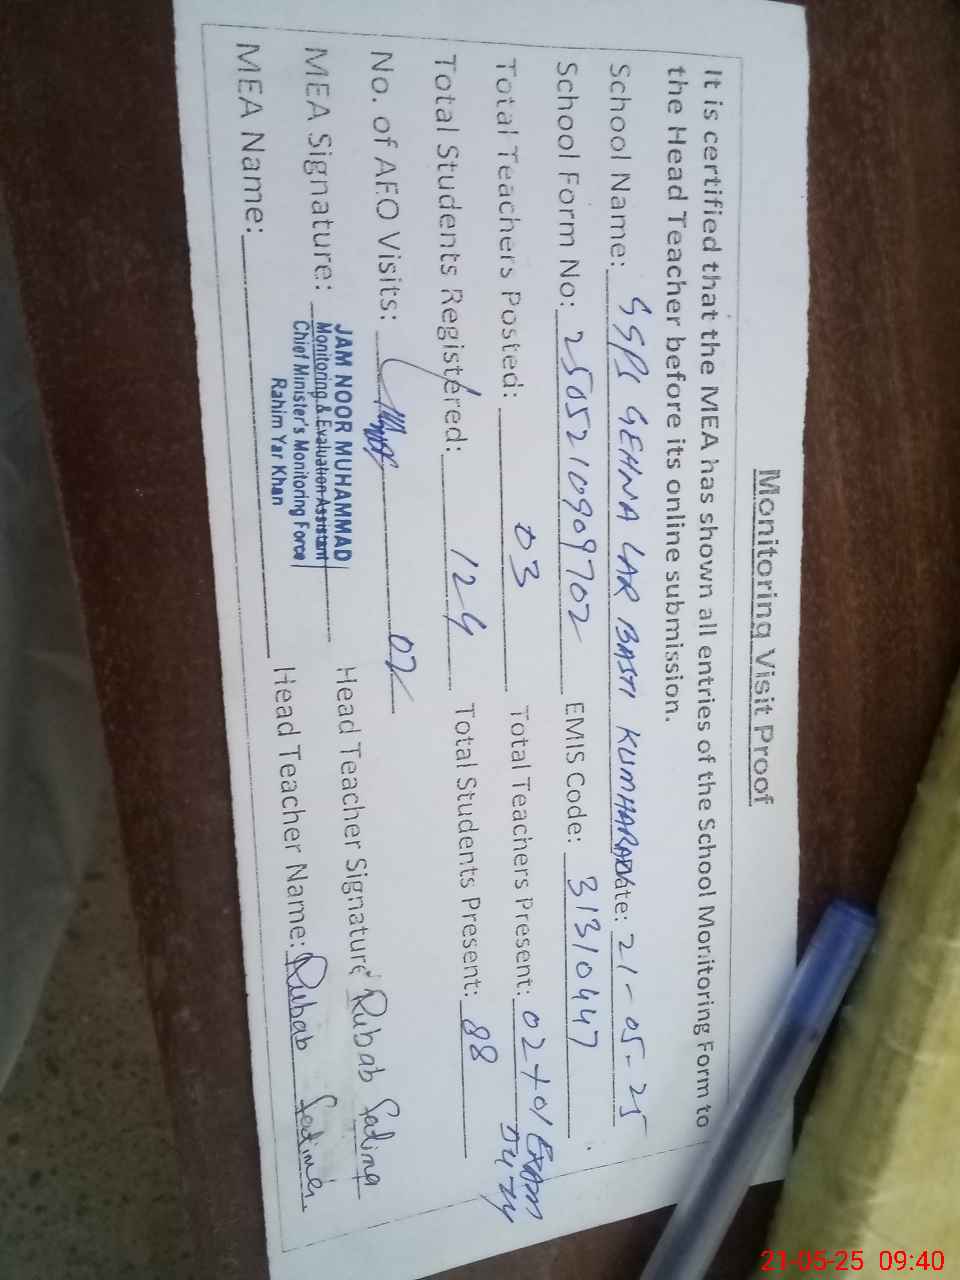 Monitoring Visit Proof
It is certified that the MEA has shown all entries of the School Monitoring Form to
the Head Teacher before its online submission.
School Name: GEHNA LAR BASTI KUMHARAN Date: 21-05-25
School Form No: 2505210909702 EMIS Code: 31310447
Total Teachers Posted: 03 Total Teachers Present: 02+01 EXAM DUTY
Total Students Registered: 124 Total Students Present: 88
No. of AEO Visits: 02
MEA Signature: Head Teacher Signature Rubab Fatima
JAM NOOR MUHAMMAD
Monitoring & Evaluation Assistant
Chief Minister's Monitoring Force
Rahim Yar Khan
MEA Name: Head Teacher Name: Rubab Fatima
21-05-25 09:40